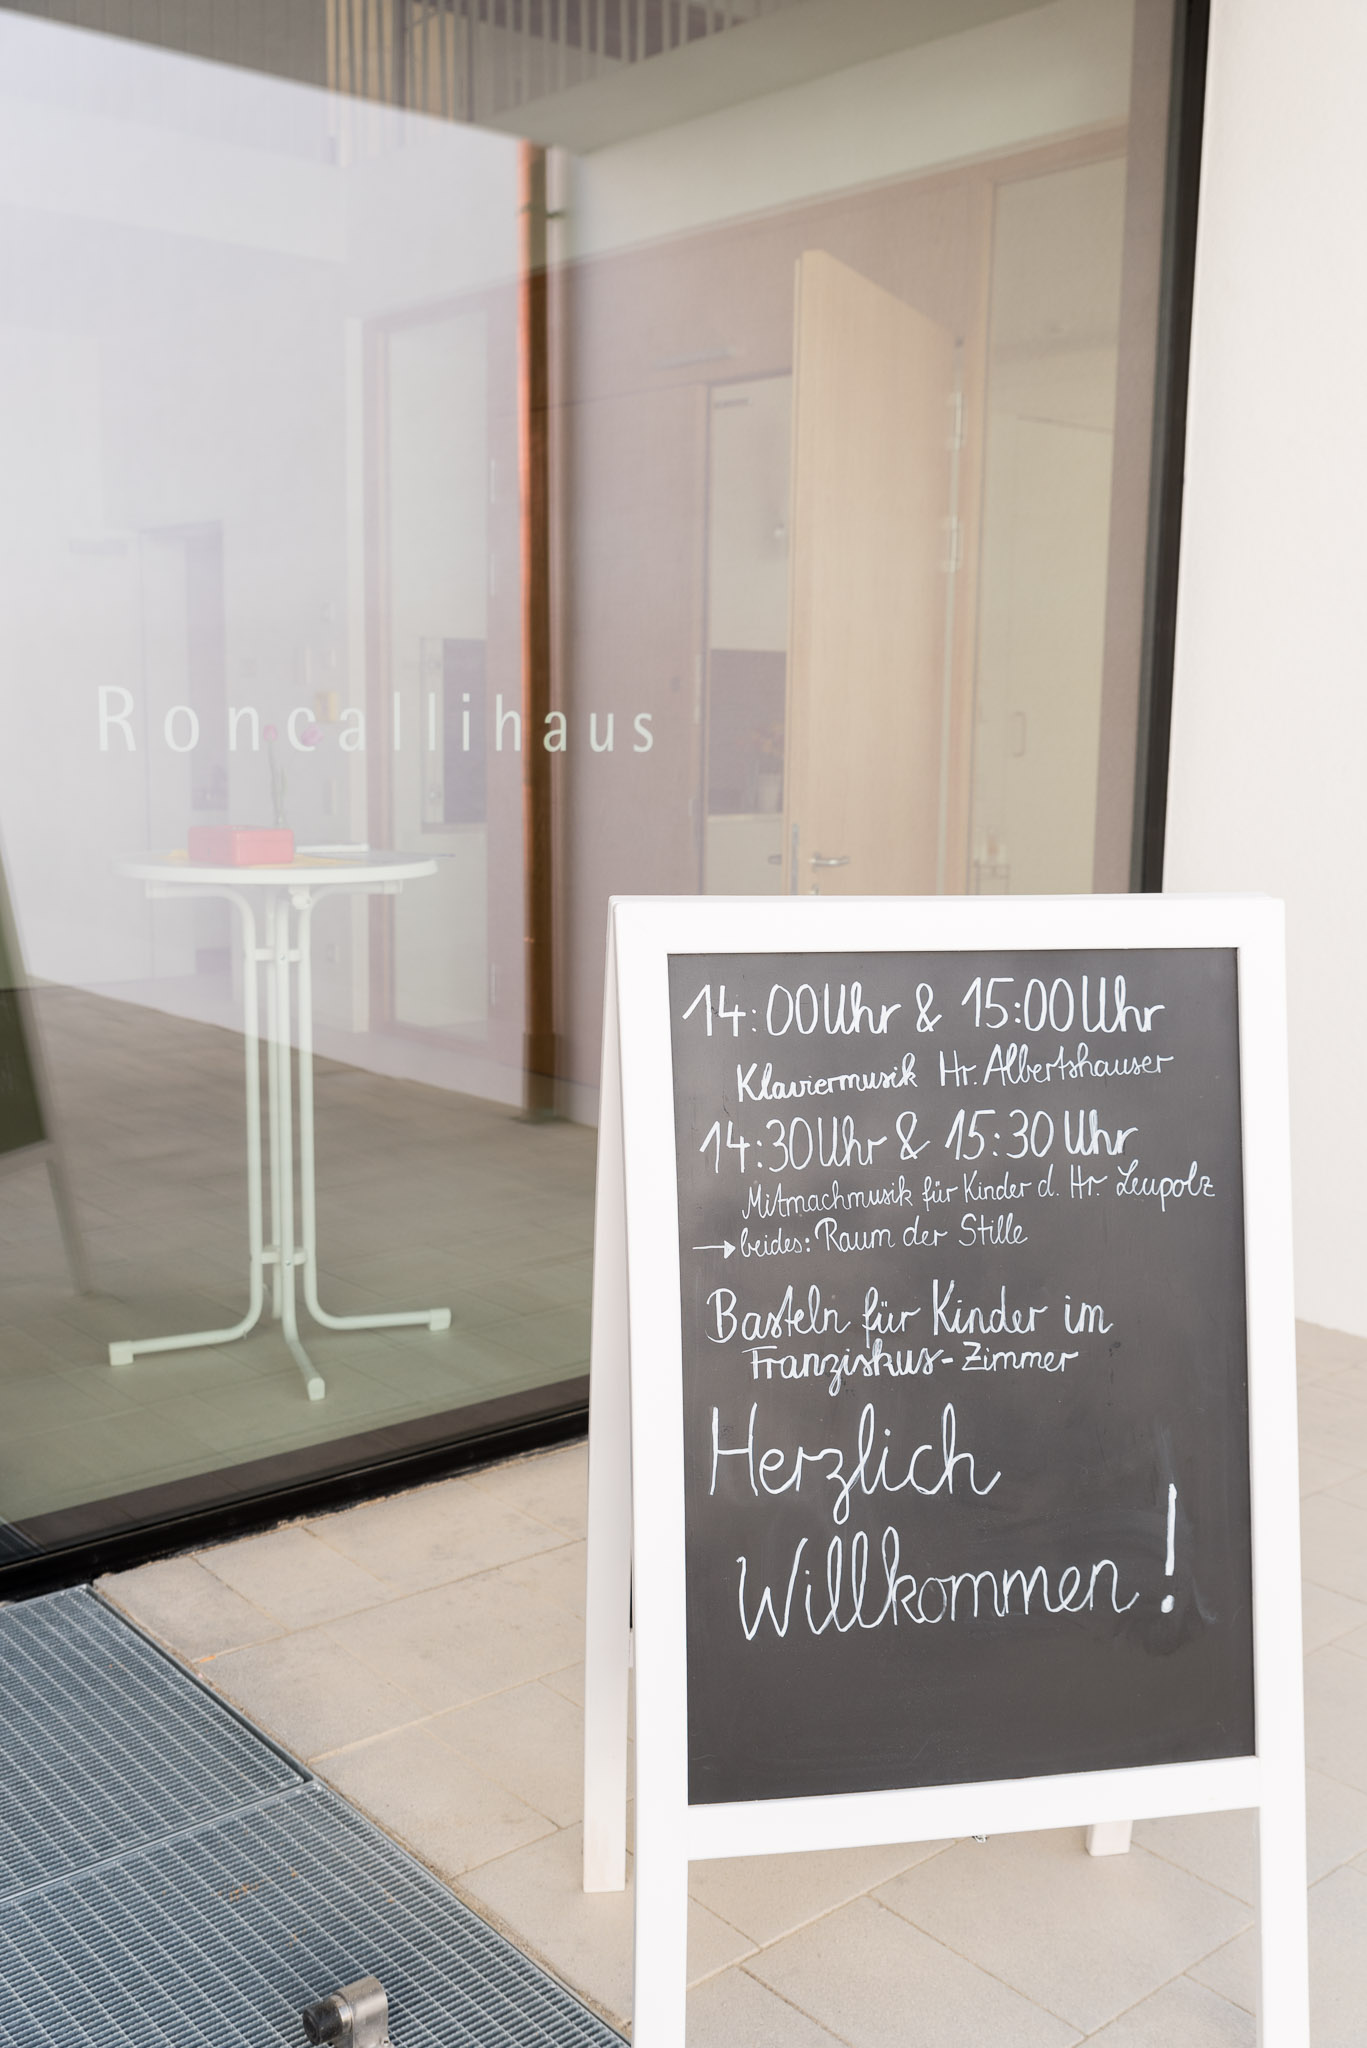 Roncallihaus
14:00 Uhr & 15:00 Uhr
Klaviermusik Hr. Albertshauser
14:30 Uhr & 15:30 Uhr
Mitmachmusik für Kinder d. Hr. Leupolz
→ beides: Raum der Stille
Basteln für Kinder im
Franziskus-Zimmer
Herzlich
Willkommen!